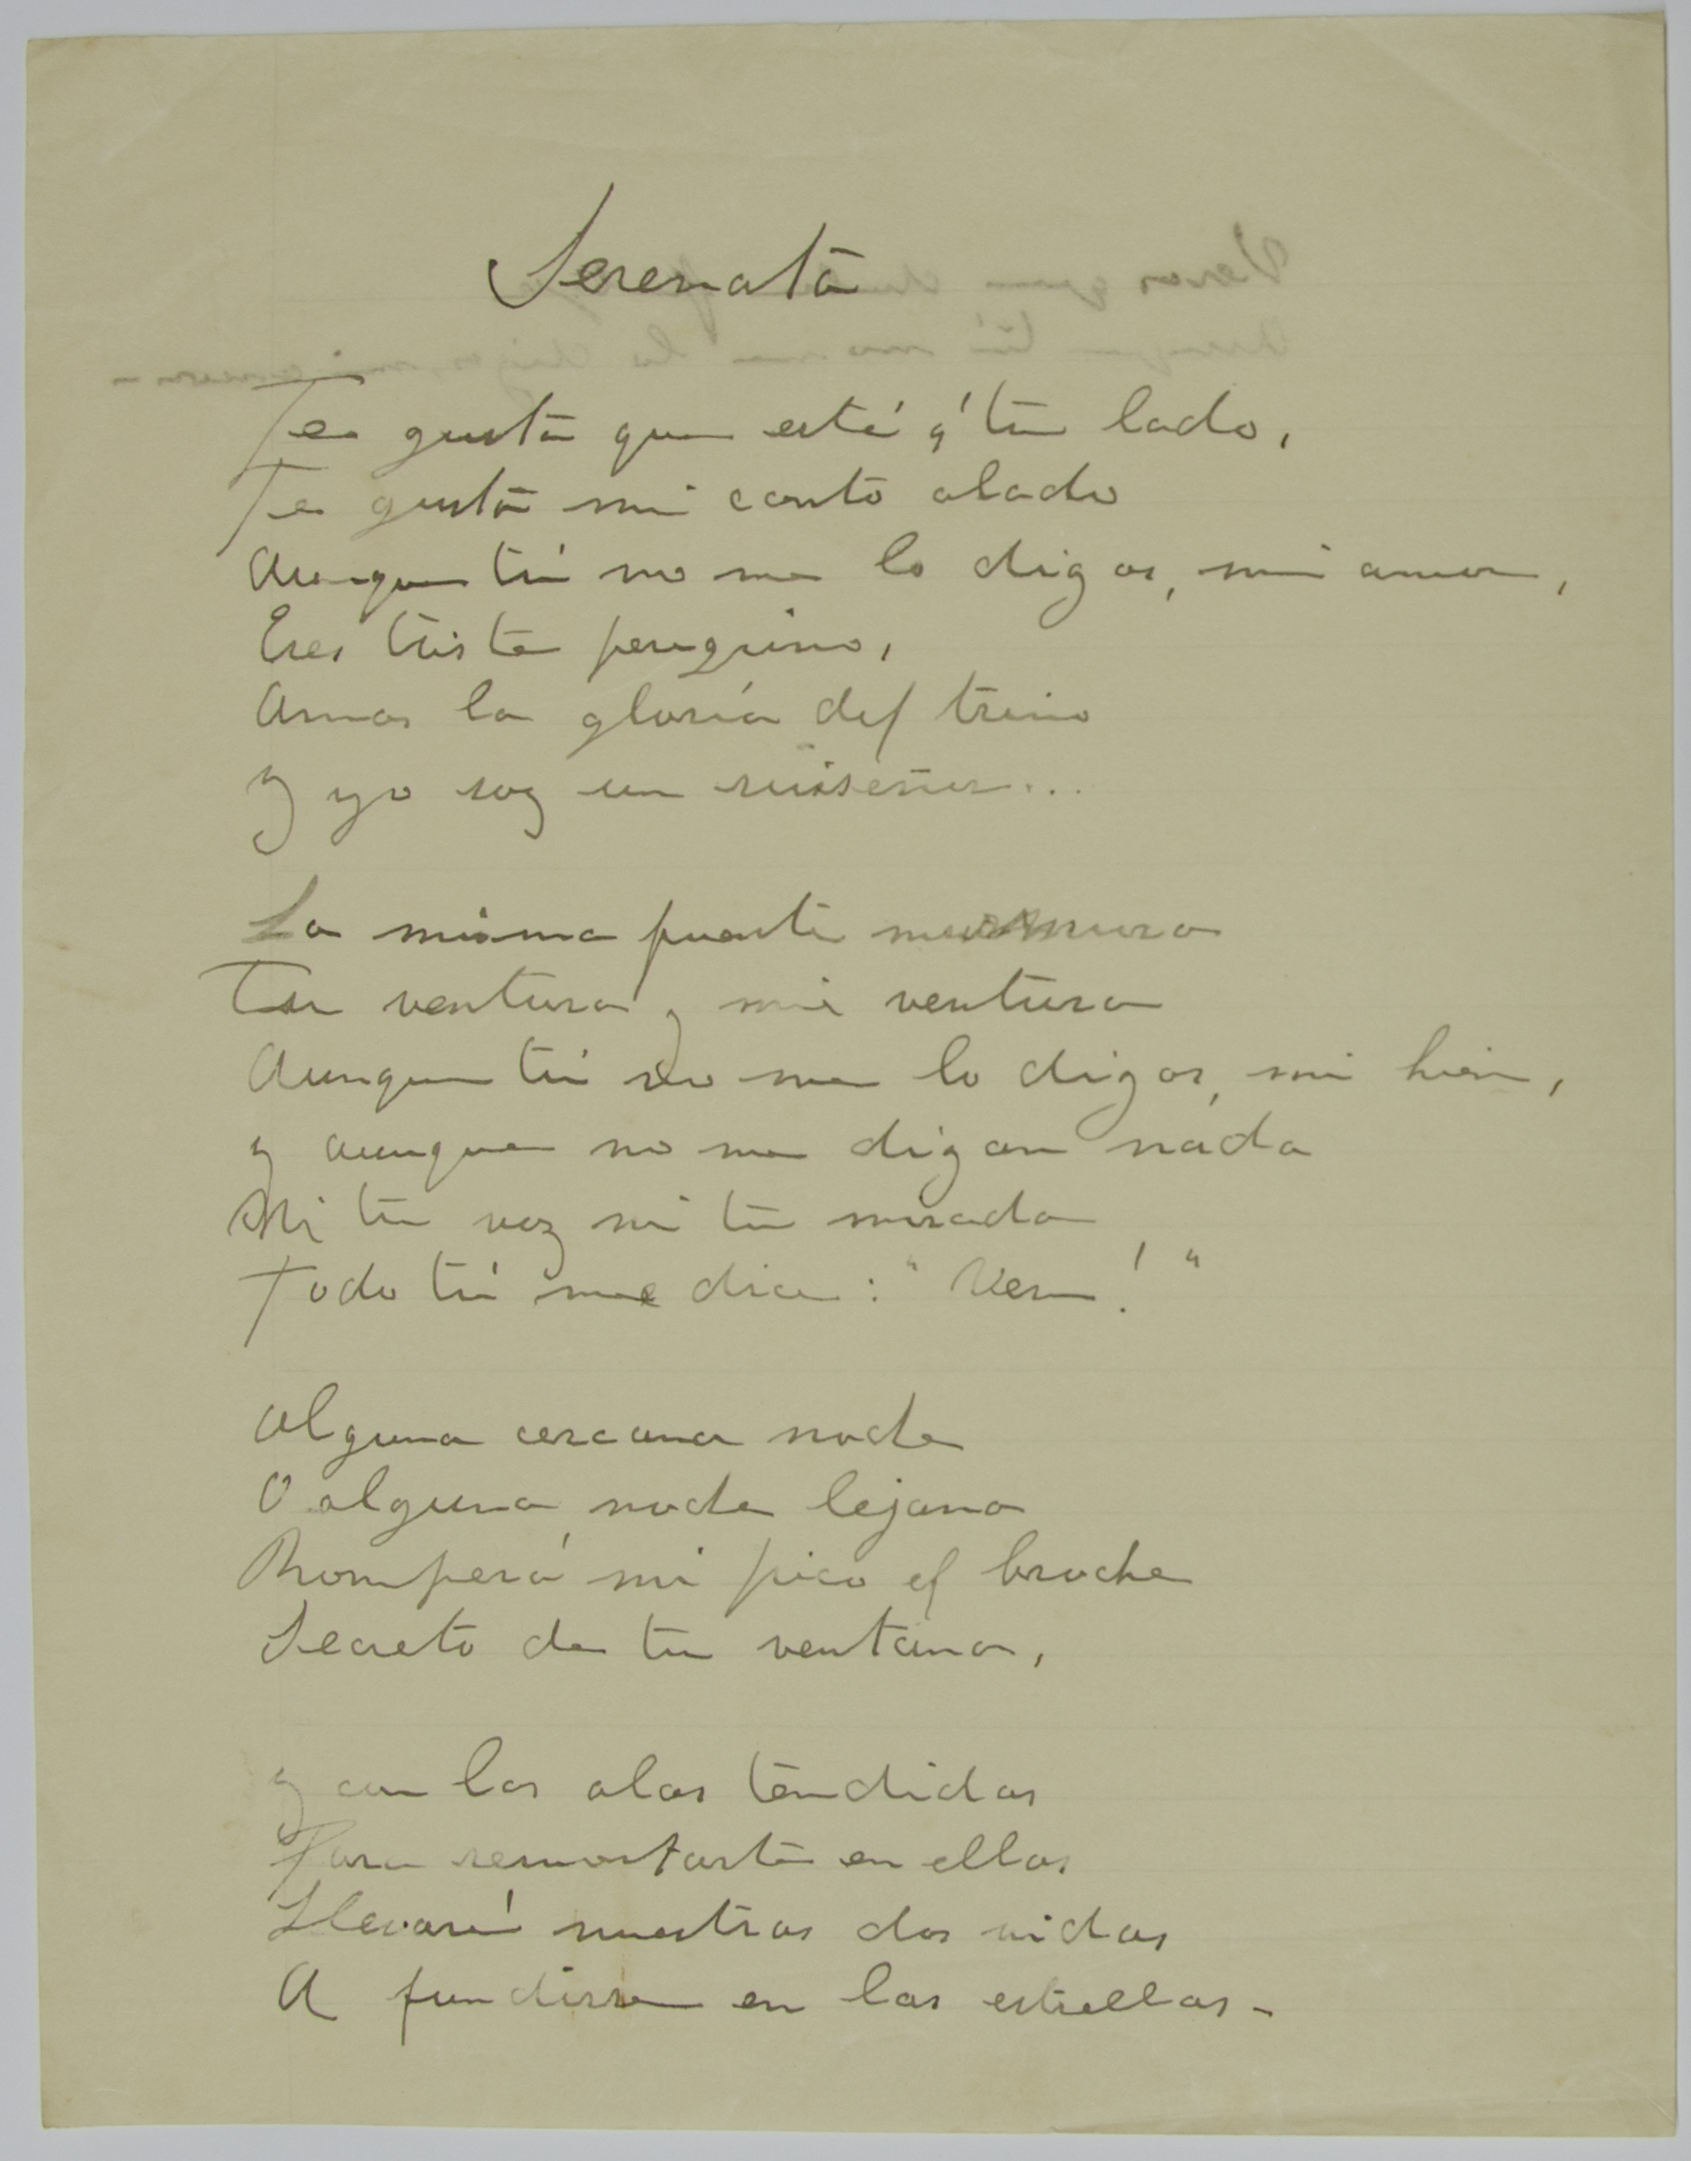 Serenata
Te gusta que esté á tu lado,
Te gusta mi canto alado
Aunque tú no me lo digas, mi amor,
Eres triste peregrino,
Amas la gloria del trino
Y yo soy un ruiseñor...
La misma fuente murmura
Tu ventura y mi ventura
Aunque tú no me lo digas, mi bien,
Y aunque no me digan nada
Ni tu voz ni tu mirada
Todo tú me dice: "Ven!"
Alguna cercana noche
O alguna noche lejana
Romperá mi pico el broche
Secreto de tu ventana,
Y con las alas tendidas
Para remontarte en ellas
Llevaré nuestras dos vidas
A fundirse en las estrellas-